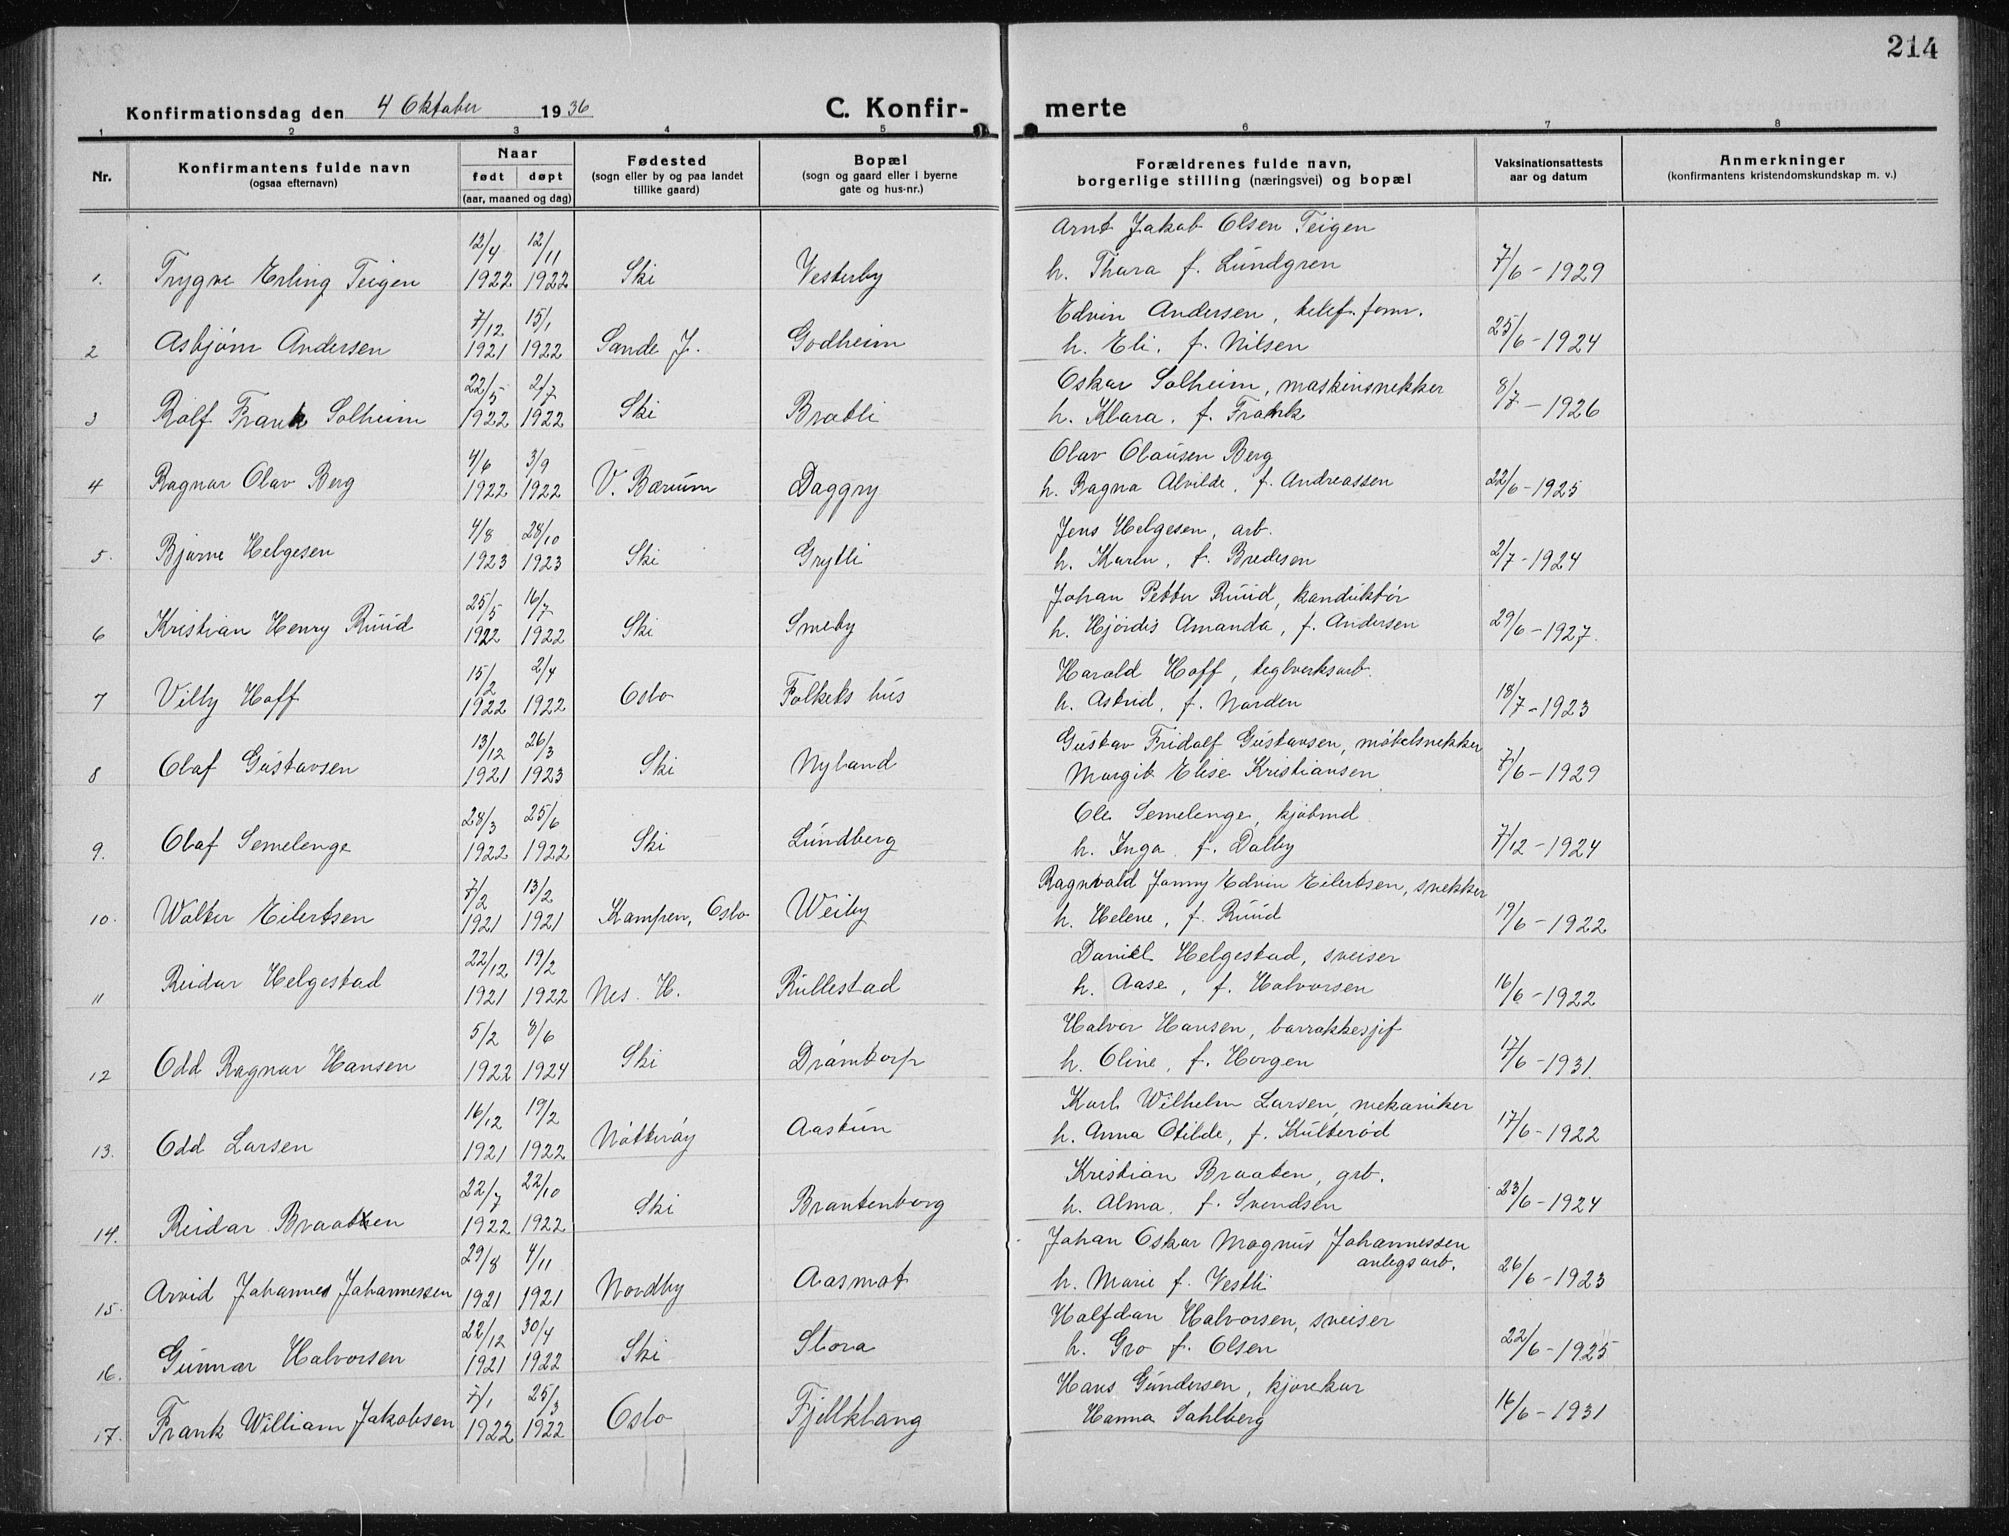 214
Konfirmationsdag den 4 Oktober 1936
C. Konfir- merte
1 2 3 4 5 6 7 8
Nr.
Konfirmantens fulde navn
(ogsaa efternavn)
Naar
født døpt
(aar, maaned og dag)
Fødested
(sogn eller by og paa landet
tillike gaard)
Bopæl
(sogn og gaard eller i byerne
gate og hus-nr.)
Forældrenes fulde navn,
borgerlige stilling (næringsvei) og bopæl
Vaksinationsattests
aar og datum
Anmerkninger
(konfirmantens kristendomskundskap m. v.)
12/4 12/11 Arnt Jakob Olsen Teigen
1. Trygve Erling Teigen 1922 1922 Ski Vesterby h. Thora f. Lundgren 7/6-1929
7/12 15/1 Edvin Andersen, telef. form.
2 Asbjørn Andersen 1921 1922 Sande J. Godheim h. Eli, f. Nilsen 25/6-1924
22/5 2/7 Oskar Solheim, maskinsnekker
3 Rolf Frank Solheim 1922 1922 Ski Bratli h. Klara, f. Frank 8/7-1926
4/6 3/9 Olav Clausen Berg
4 Ragnar Olav Berg 1922 1922 V. Bærum Daggry h. Ragna Alvilde, f. Andreassen 22/6-1925
4/8 28/10 Jens Helgesen, arb.
5. Bjarne Helgesen 1923 1923 Ski Grytli h. Karen, f. Bredesen 2/7-1924
25/5 16/7 Johan Petter Ruud, konduktør
6 Kristian Henry Ruud 1922 1922 Ski Smeby h. Hjördis Amanda, f. Andersen 29/6-1927.
15/2 2/4 Harald Hoff, teglverksarb.
7 Villy Hoff 1922 1922 Oslo Folkets hus h. Astrid, f. Norden 18/7-1923
13/12 26/3 Gustav Fridolf Gustavsen, møbelsnekker
8 Olaf Gustavsen 1921 1923 Ski Nyland Margit Elise Kristiansen 7/6-1929
28/3 25/6 Ole Semelenge, kjøbmd
9. Olaf Semelenge 1922 1922 Ski Lundberg h. Inga f. Dalby 7/12-1924
7/2 13/2 Ragnvald Jonny Edvin Eilertsen, snekker
10. Walter Eilertsen 1921 1921 Kampen, Oslo Weiby h. Helene, f. Ruud 19/6-1922
22/12 19/2 Daniel Helgestad, sveiser
11 Reidar Helgestad 1921 1922 Nes. H. Rullestad h. Aase, f. Halvorsen 16/6-1922
5/2 8/6 Halvor Hansen, barrakkesjef
12 Odd Ragnar Hansen 1922 1924 Ski Drömtorp h. Oline, f. Horgen 17/6-1931.
16/12 19/2 Karl Wilhelm Larsen, mekaniker
13. Odd Larsen 1921 1922 Nötteröy Aastun h. Anna Otilde, f. Kulterød 17/6-1922
22/7 22/10 Kristian Braaten, grb.
14. Reidar Braaten 1922 1922 Ski Brantenborg h. Alma f. Svendsen 23/6-1924
29/8 4/11 Johan Oskar Magnus Johannessen
anlegsarb.
15. Arvid Johannes Johannessen 1921 1921 Nordby Aasmot h. Marie f. Vestli 26/6-1923
22/12 30/4 Halfdan Halvorsen, sveiser
16. Gunnar Halvorsen 1921 1922 Ski Stora h. Gro f. Olsen 22/6-1925
7/1 25/3 Hans Gundersen, kjørekar
17. Frank William Jakobsen 1922 1922 Oslo Fjellklang Hanna Sahlberg 16/6-1931